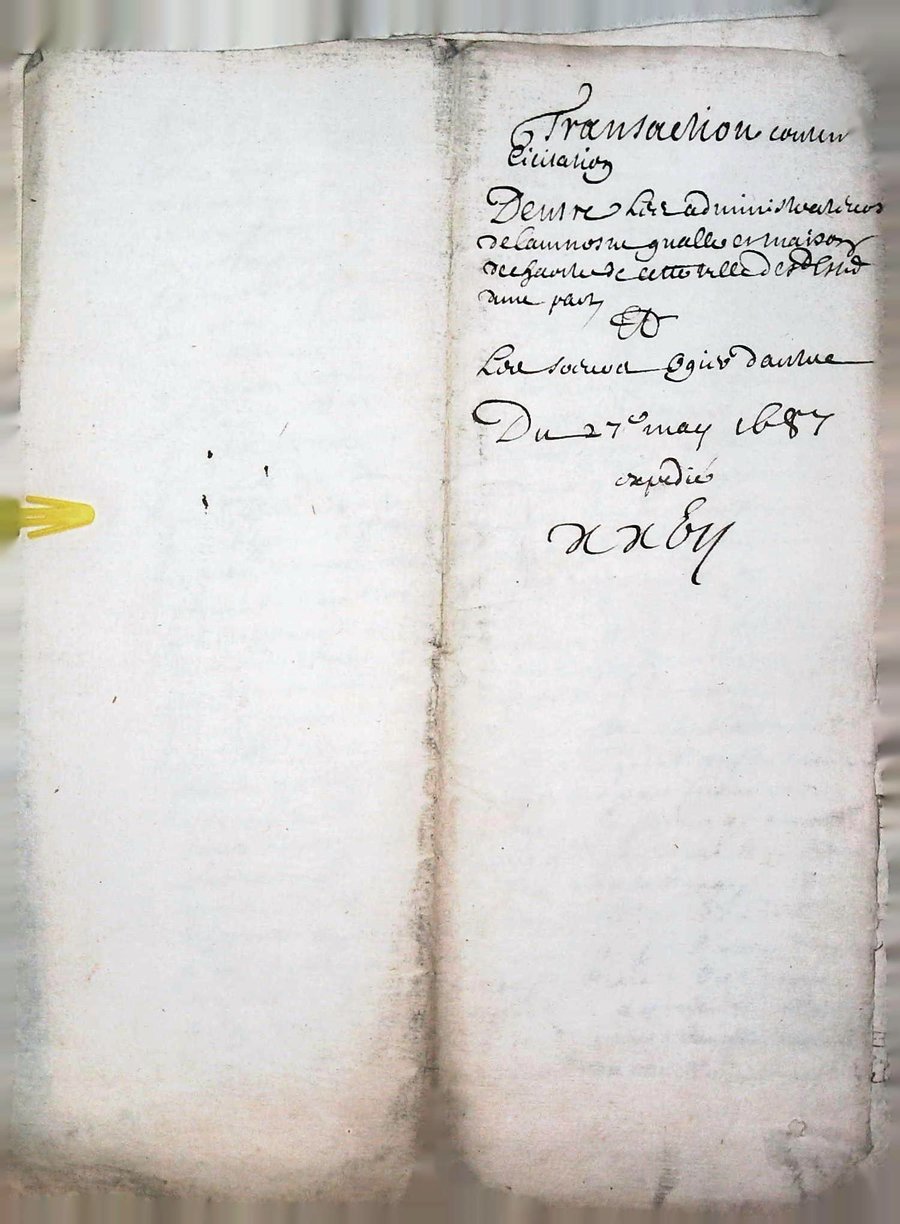 Transaction conten
licitation
Dentre Les administrateurs
de laumosne gnalle et maison
de charité de cette ville de
dune part
Et
Les soeurs Ogier dautre
Du 27e may 1687
expedié